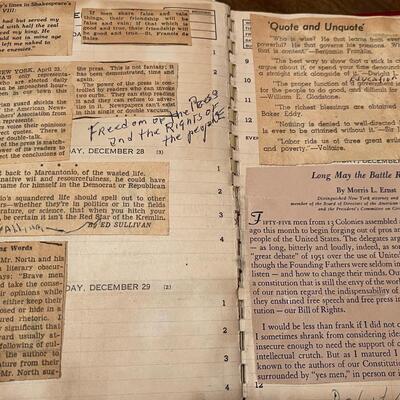 's lines in Shakespeare's
VIII:
but served my God
with half the zeal
served my king, He
ould not in mine age
left me naked to
ine enemies.
If men share false and vain
things, their friendship will be
false and vain; if that which is
good and true, their friendship
will be good and true.—St. Francis de
Sales.
YORK, April 23.
only represents
are elected daily
be impounded hour-
in my town this
guard shields the
American News-
Association from
represent.
There is no question
-talk.
of the press is match-
ower of its readers
the conclusions of
this. This is not fantasy; it
has been demonstrated, time and
again.
The power of the press is con-
trolled by readers who can invoke
its curfu. They can stop reading
it and they can refuse to adver-
tise in it. Newspapers can't exist
in this single or double vacuum.
Freedom of the Press
and the Rights of
the people
AY, DECEMBER 28
(3)
back to Marcantonio, of the wasted life.
native wit and resourcefulness, he could have
name for himself in the Democrat or Republican
io's squandered life should spell out to other
rs—whether they're in politics or in the fields
terature, or science, that when you hitch your
be certain it isn't the Red Star of the Kremlin.
By ED SULLIVAN
ng Words
Mr. North and his
literary obscur-
ays: "Brave men
d take the conse-
eir opinions while
either keep their
osed or hide in a
ured rhetoric. It
significant that
ward usually at-
following of cul-
the author to
nature from the
Mr. North sug-
DAY, DECEMBER 29
(3)
1
2
3
4
1
2
3
4
'Quote and Unquote'
"Who is wise? He that learns from every
powerful? He that governs his passions. Who
that is content."—Benjamin Franklin.
"The best way to show that a stick is c
argue about it, or spend your time denounc
a straight stick alongside it."—Dwight L
Education
"The proper function of
for the people to do good, and difficult for
William E. Gladstone.
"The richest blessings are obtained
Baker Eddy.
"Nothing is denied to well-directed l
is ever to be attained without it."—Sir
"Labor rids us of three great evils
and poverty."—Voltaire.
DECEMBER
Long May the Battle R
By Morris L. Ernst
Distinguished New York attorney and
member of the Board of Directors of the American
and the President's committee on
FIFTY-FIVE men from 13 Colonies assembled a
ago this month to begin forging out of pros a
people of the United States. The delegates arg
— as long, bitterly and loudly, indeed, as som
"great debate" of 1951 over the use of United
though the Founding Fathers were seldom in
listen — and how to change their minds. Our
a constitution that is still the envy of the wor
of our nation regard the indispensability of
they enshrined free speech and free press in
tion — our Bill of Rights.
I would be less than frank if I did not c
I sometimes shrank from considering ideas
insecure enough to need the support of c
intellectual crutch. But as I matured I
known to the authors of our Constitution
surrounded by "yes men," in person or i
12